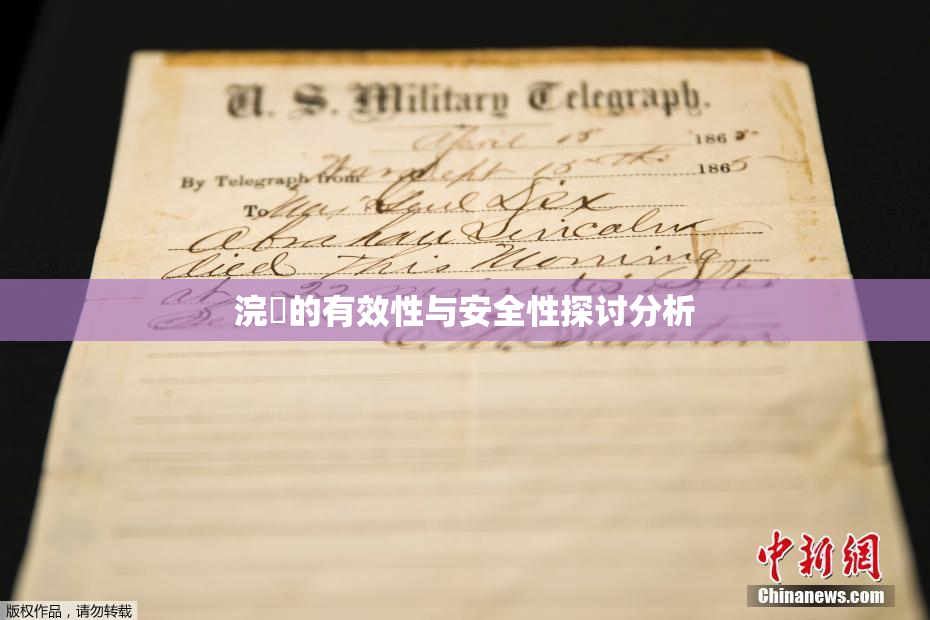 U. S. Military Telegraph.
April 15 1865
By Telegraph from War Dept 15th 1865
To Maj Genl Dix
Abraham Lincoln
died This Morning
at 22 minutes after
浣的有效性与安全性探讨分析
E. M. Stanton
中新网
Chinanews.com
版权作品,请勿转载